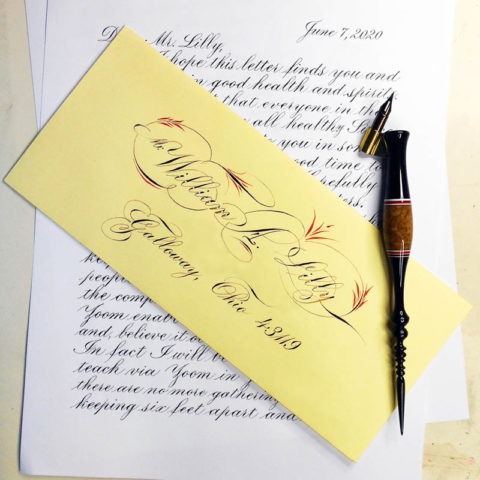 June 7, 2020
Mr. Lilly,
I hope this letter finds you and
in good health and spirits
that everyone in the
all healthy
to you in
time to
Mr. William A. Lilly
Galloway, Ohio 43119
the
Zoom
and, believe it
In fact I will
teach via Zoom in
there are no more gathering
keeping six feet apart and